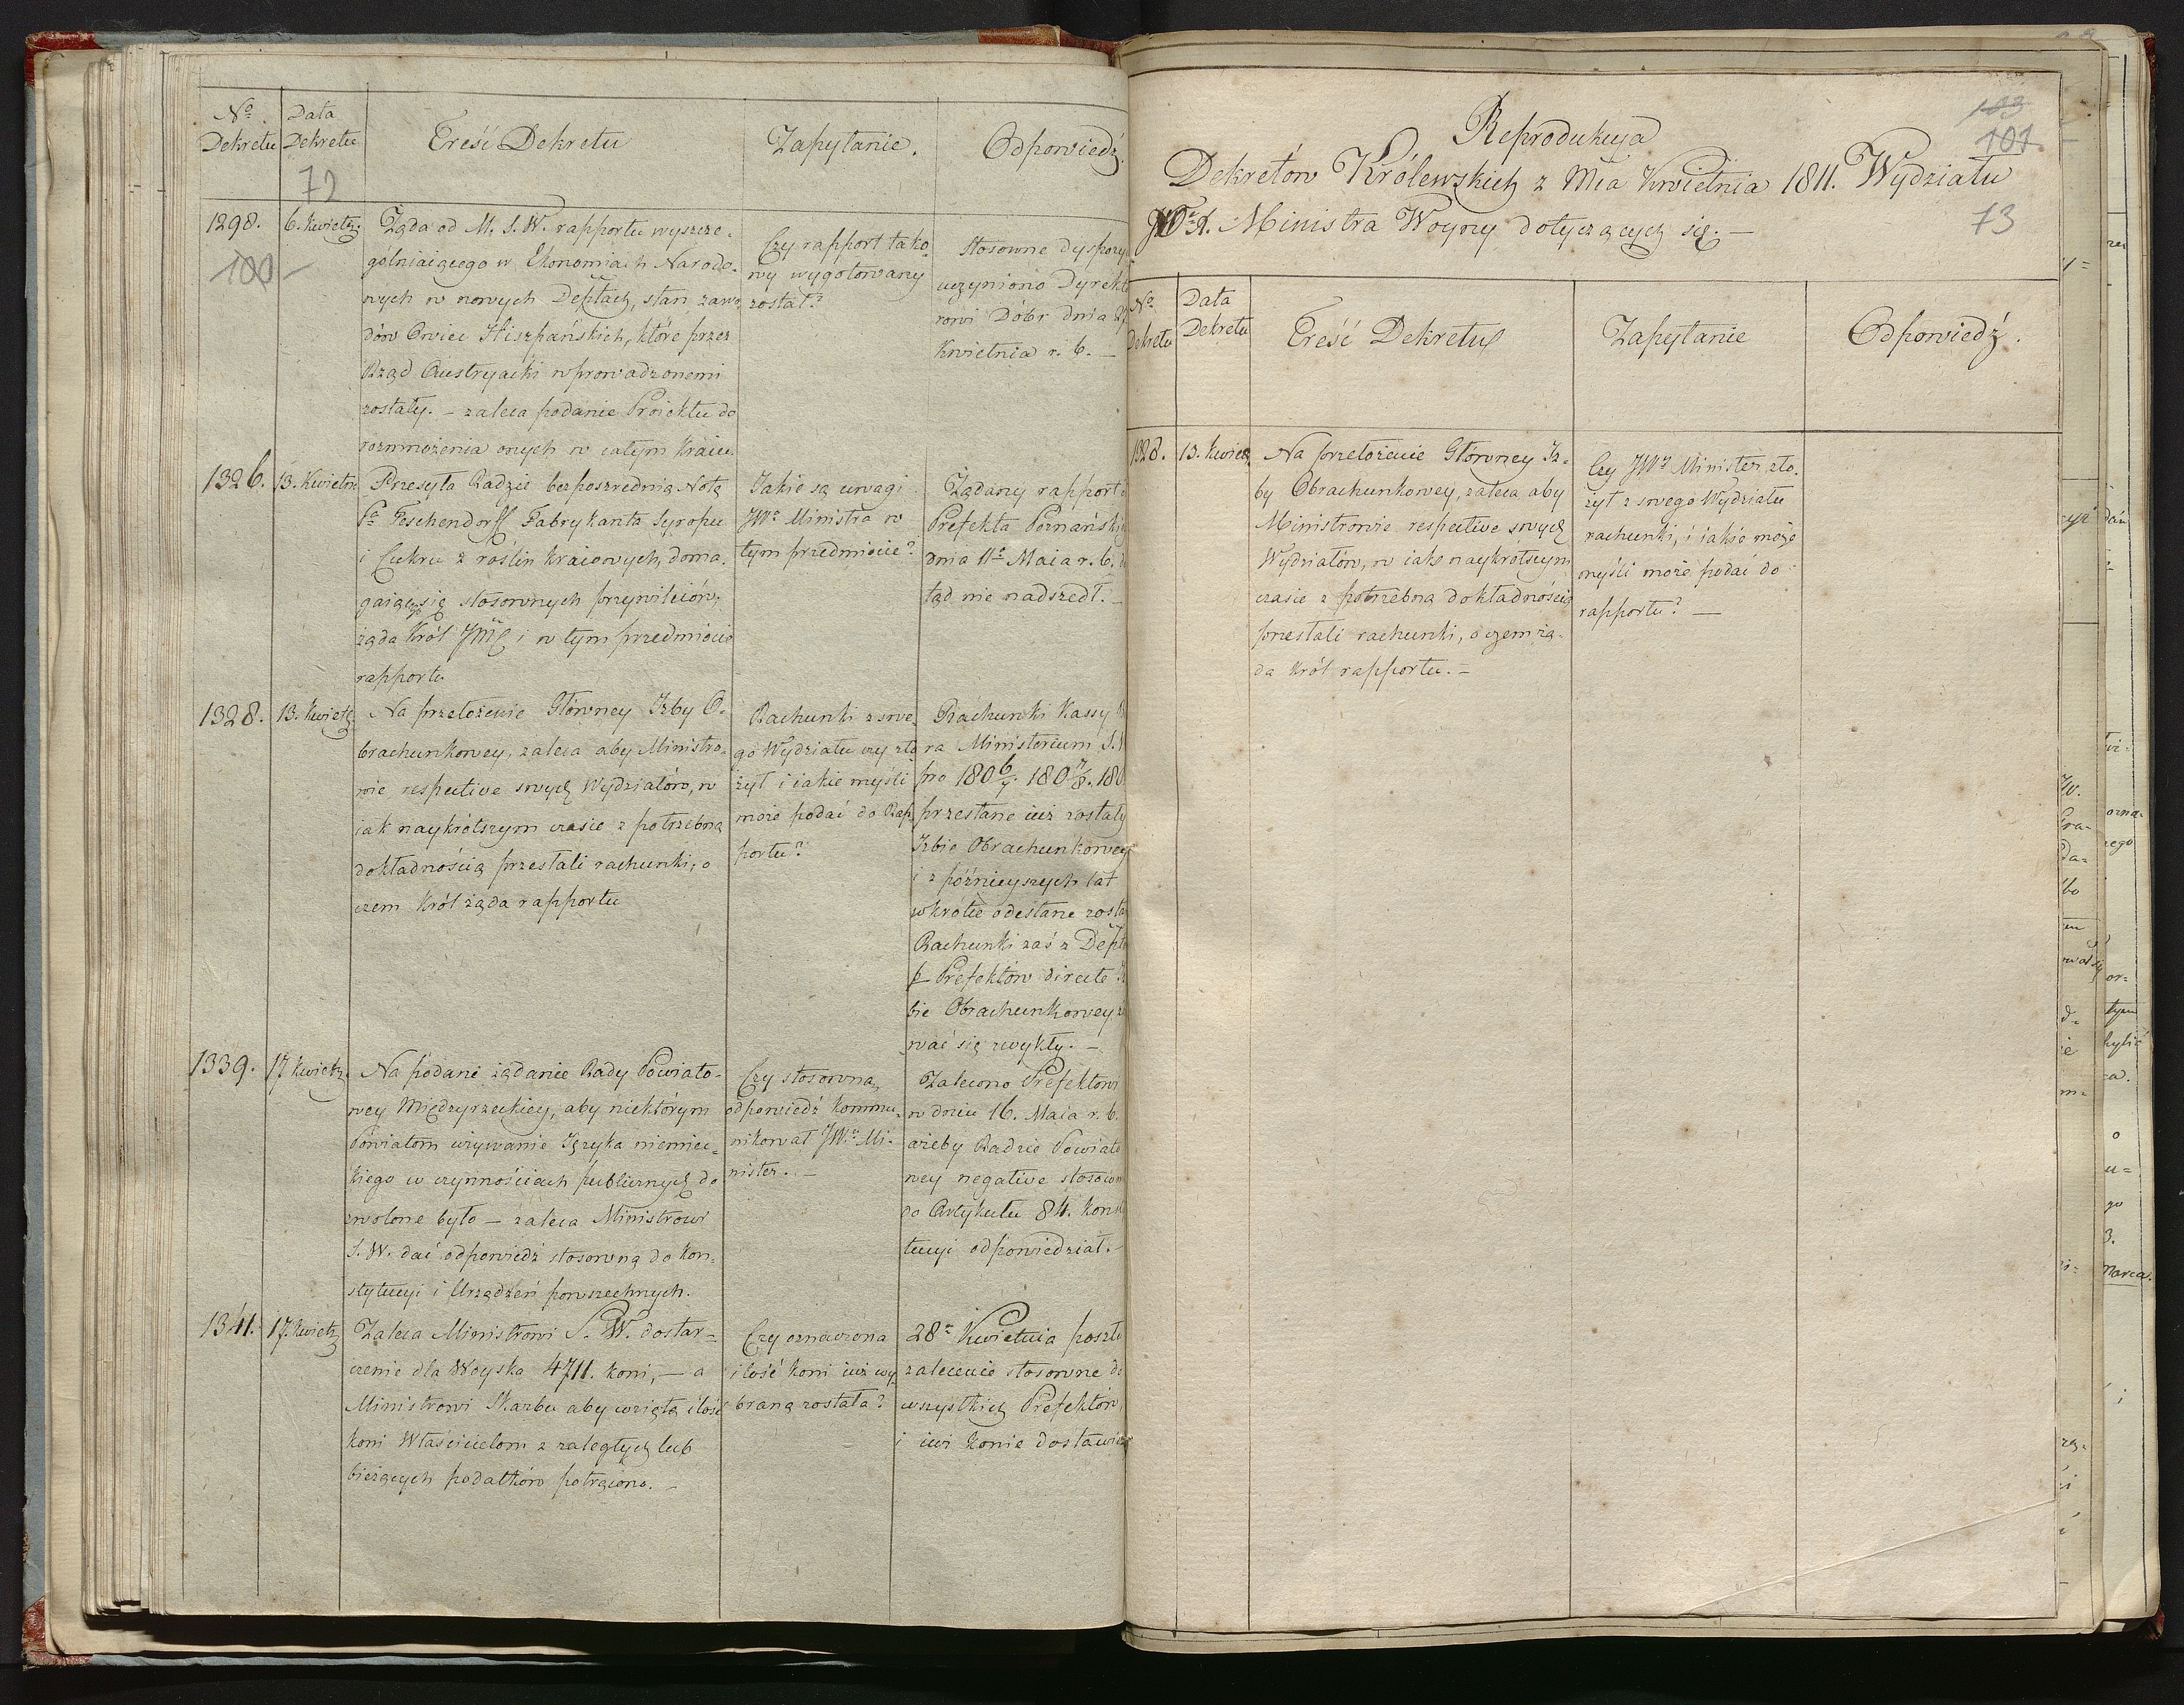 No. Dekretu
Data Dekretu
Treść Dekretu
Zapytanie.
Odpowiedź.
72
1298.
100
6. Kwietn.
Żąda od M. S. W. rapportu wyszcze-
gólniaiącego w Ekonomiach Narodo-
wych w nowych Deptach, stan zawo-
dów Owiec Hiszpańskich, które przez
Rząd Austryacki wprowadzonemi
zostały. – zaleca podanie Proiektu do
rozmnożenia onych w całym Kraiu
Czy rapport tako-
wy wygotowany
został?
Stosowne dyspozy
uczyniono Dyrekto
rowi Dóbr dnia 27
Kwietnia r. b. –
1326.
13. Kwietn
Przesyła Radzie bezpośrednią Notę
Pa Teschendorff Fabrykanta Syropu
i Cukru z roślin kraiowych, doma-
gaiącego się stosownych przywileiów,
żąda Król JMć i w tym przedmiocie
rapportu
Jakie są uwagi
JWo Ministra w
tym przedmiocie?
Żądany rapport
Prefekta Poznański
dnia 11o Maia r. b. do
tąd nie nadszedł. –
1328.
13. Kwietn
Na przełożenie Główney Izby O-
brachunkowey, zaleca aby Ministro-
wie respective swych Wydziałów, w
iak naykrótszym czasie z potrzebną
dokładnością przesłali rachunki, o
czem Król żąda rapportu
Rachunki z swe-
go Wydziału czy zło
żył i iakie myśli
może podać do Rap
portu?
Rachunki Kassy
ra Ministerium S.
pro 1806/7. 1807/8. 180
przesłane iuż zostały
Izbie Obrachunkowey
i z późnieyszych lat
wkrótce odesłane zosta
Rachunki zaś z Dept
p. Prefektów directe
bie Obrachunkowey
wać się zwykły. –
1339.
17 Kwietn
Na podane żądanie Rady Powiato-
wey Międzyrzeckiey, aby niektórym
Powiatom używanie Języka niemiec-
kiego w czynnościach publicznych do
zwolone było – zaleca Ministrowi
S. W. dać odpowiedź stosowną do Kon-
stytucyi i Urządzeń powszechnych.
Czy stosowną
odpowiedź kommu-
nikował JWny Mi-
nister. –
Zalecono Prefektowi
w dniu 16. Maia r. b.
ażeby Radzie Powiato
wey negative stosown
do Artykułu 84. Konst
tucyi odpowiedział. –
1341.
17. Kwietn
Zaleca Ministrowi S. W. dostar-
czenie dla Woyska 4711. koni, – a
Ministrowi Skarbu aby wziętą ilość
koni Właścicielom z zaległych lub
bieżących podatków potrącono. –
Czy oznaczona
ilość koni iuż wy-
braną została?
28o Kwietnia poszło
zalecenie stosowne do
wszystkich Prefektów,
i iuż konie dostawio
103
101
73
Reprodukcya
Dekretów Królewskich z Mca Kwietnia 1811. Wydziału
JWo Ministra Woyny dotyczących się. –
No Dekretu
Data Dekretu
Treść Dekretu
Zapytanie
Odpowiedź.
1328.
13. Kwietn
Na przełożenie Główney Iz-
by Obrachunkowey, zaleca aby
Ministrowie respective swych
Wydziałów, w iak naykrótszym
czasie z potrzebną dokładnością
przesłali rachunki, o czem żą-
da Król rapportu. –
Czy JWy Minister zło-
żył z swego Wydziału
rachunki, i iakie może
myśli może podać do
rapportu? –